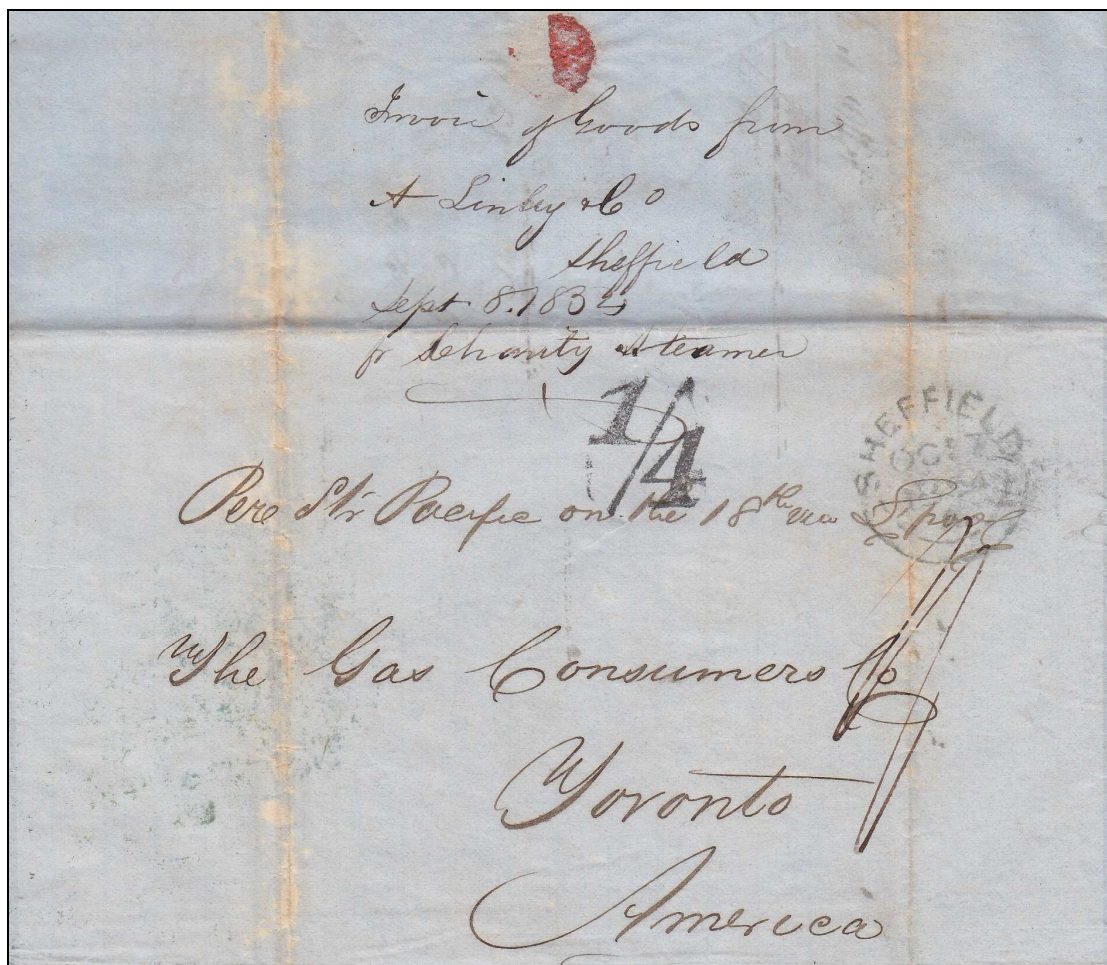 Invoice of Goods from
A Linley & Co
Sheffield
Sept 8. 1854
pr Steamer
1/4
SHEFFIELD
OC
Pere Str Pacific on the 18th via L'pool
The Gas Consumers Co
Toronto
America